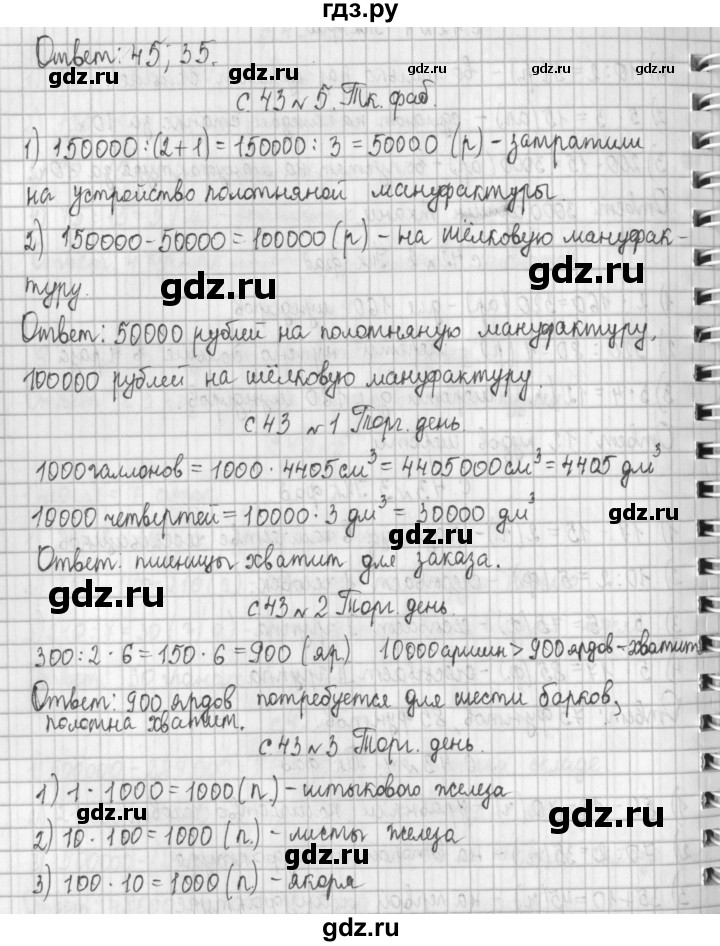 гдз.ру
Ответ: 45; 35.
gdz.ru gdz.ru gdz.ru
с. 43 № 5. Тк. фаб.
1) 150000 : (2+1) = 150000 : 3 = 50000 (р) - затратили
gdz.ru
на устройство полотняной мануфактуры.
2) 150000 - 50000 = 100000 (р) - на шёлковую мануфак-
gdz.ru gdz.ru
туру.
Ответ: 50000 рублей на полотняную мануфактуру,
gdz.ru
100000 рублей на шёлковую мануфактуру.
с 43 № 1 Торг. день.
gdz.ru gdz.ru
1000 галлонов = 1000 · 4405 см³ = 4405000 см³ = 4405 дм³
10000 четвертей = 10000 · 3 дм³ = 30000 дм³
gdz.ru gdz.ru
Ответ: пшеницы хватит для заказа.
gdz.ru
с. 43 № 2 Торг. день.
gdz.ru
300 : 2 · 6 = 150 · 6 = 900 (яр) 10000 аршин > 900 ярдов - хватит
Ответ: 900 ярдов потребуется для шести барков,
gdz.ru gdz.ru
полотна хватит.
с. 43 № 3 Торг. день.
1) 1 · 1000 = 1000 (п.) - штыкового железа
gdz.ru gdz.ru
2) 10 · 100 = 1000 (п.) - листы железа
gdz.ru
3) 100 · 10 = 1000 (п.) - якоря
gdz.ru
gdz.ru